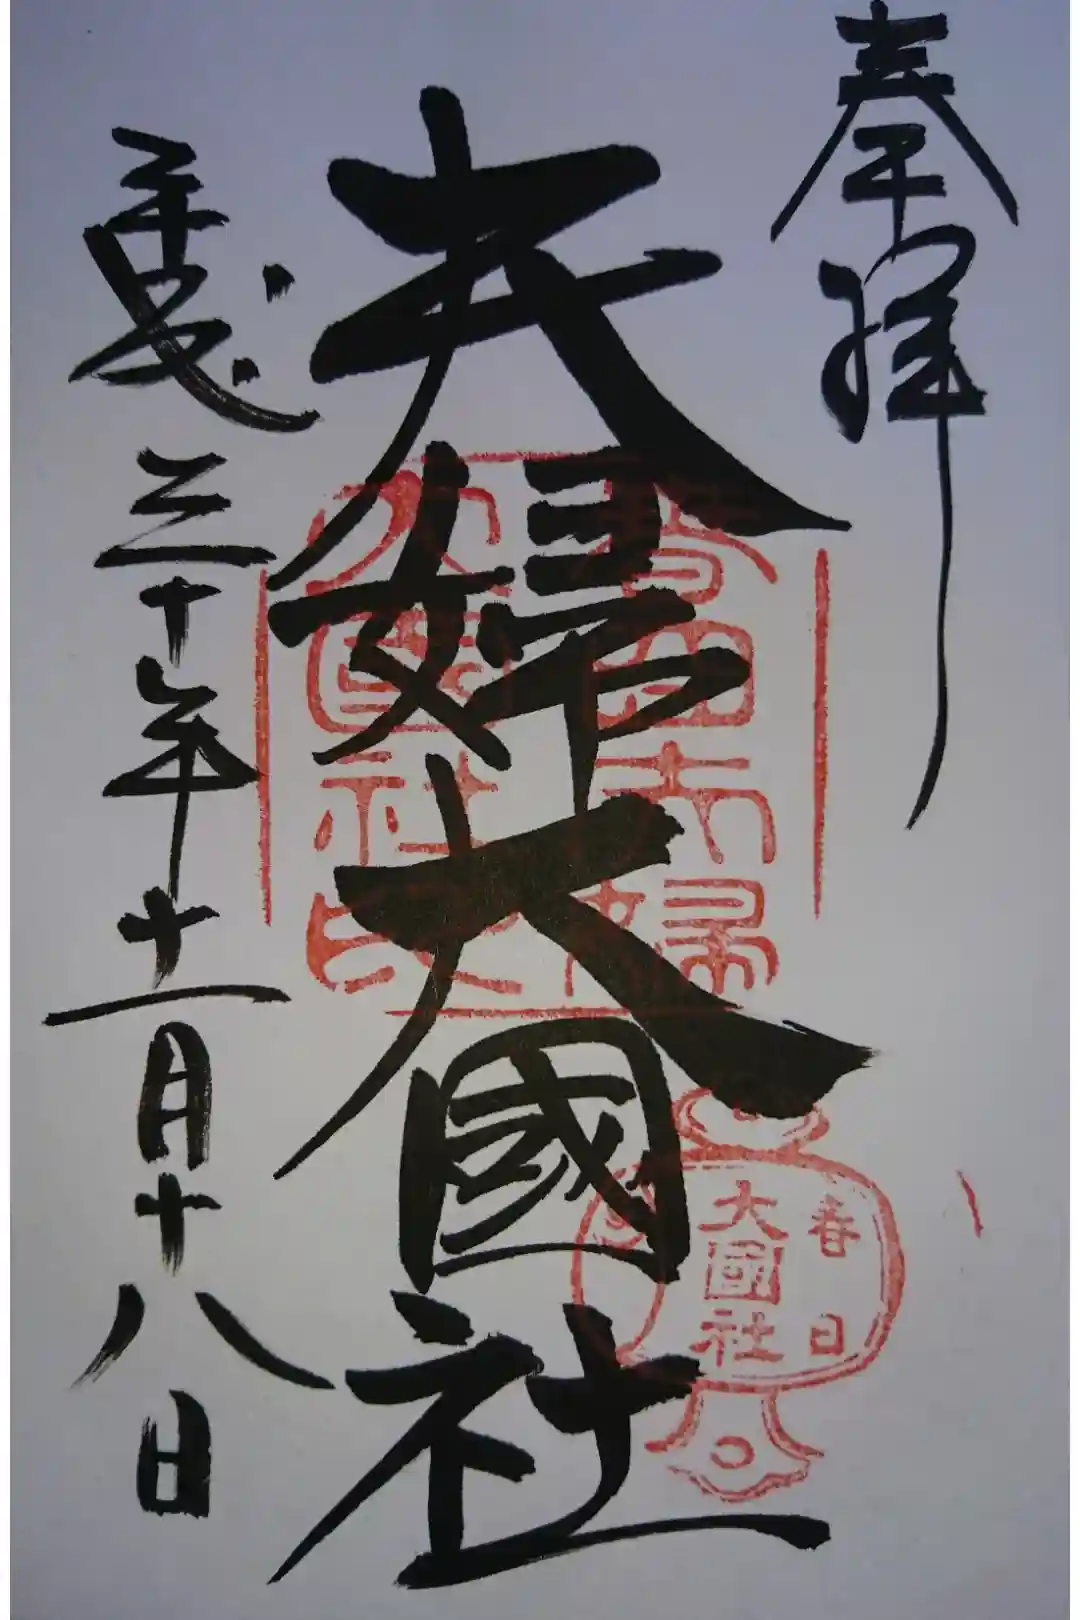 奉拝
夫婦大國社
平成三十年十一月十八日
春日夫婦
大國社印
春日
大國社